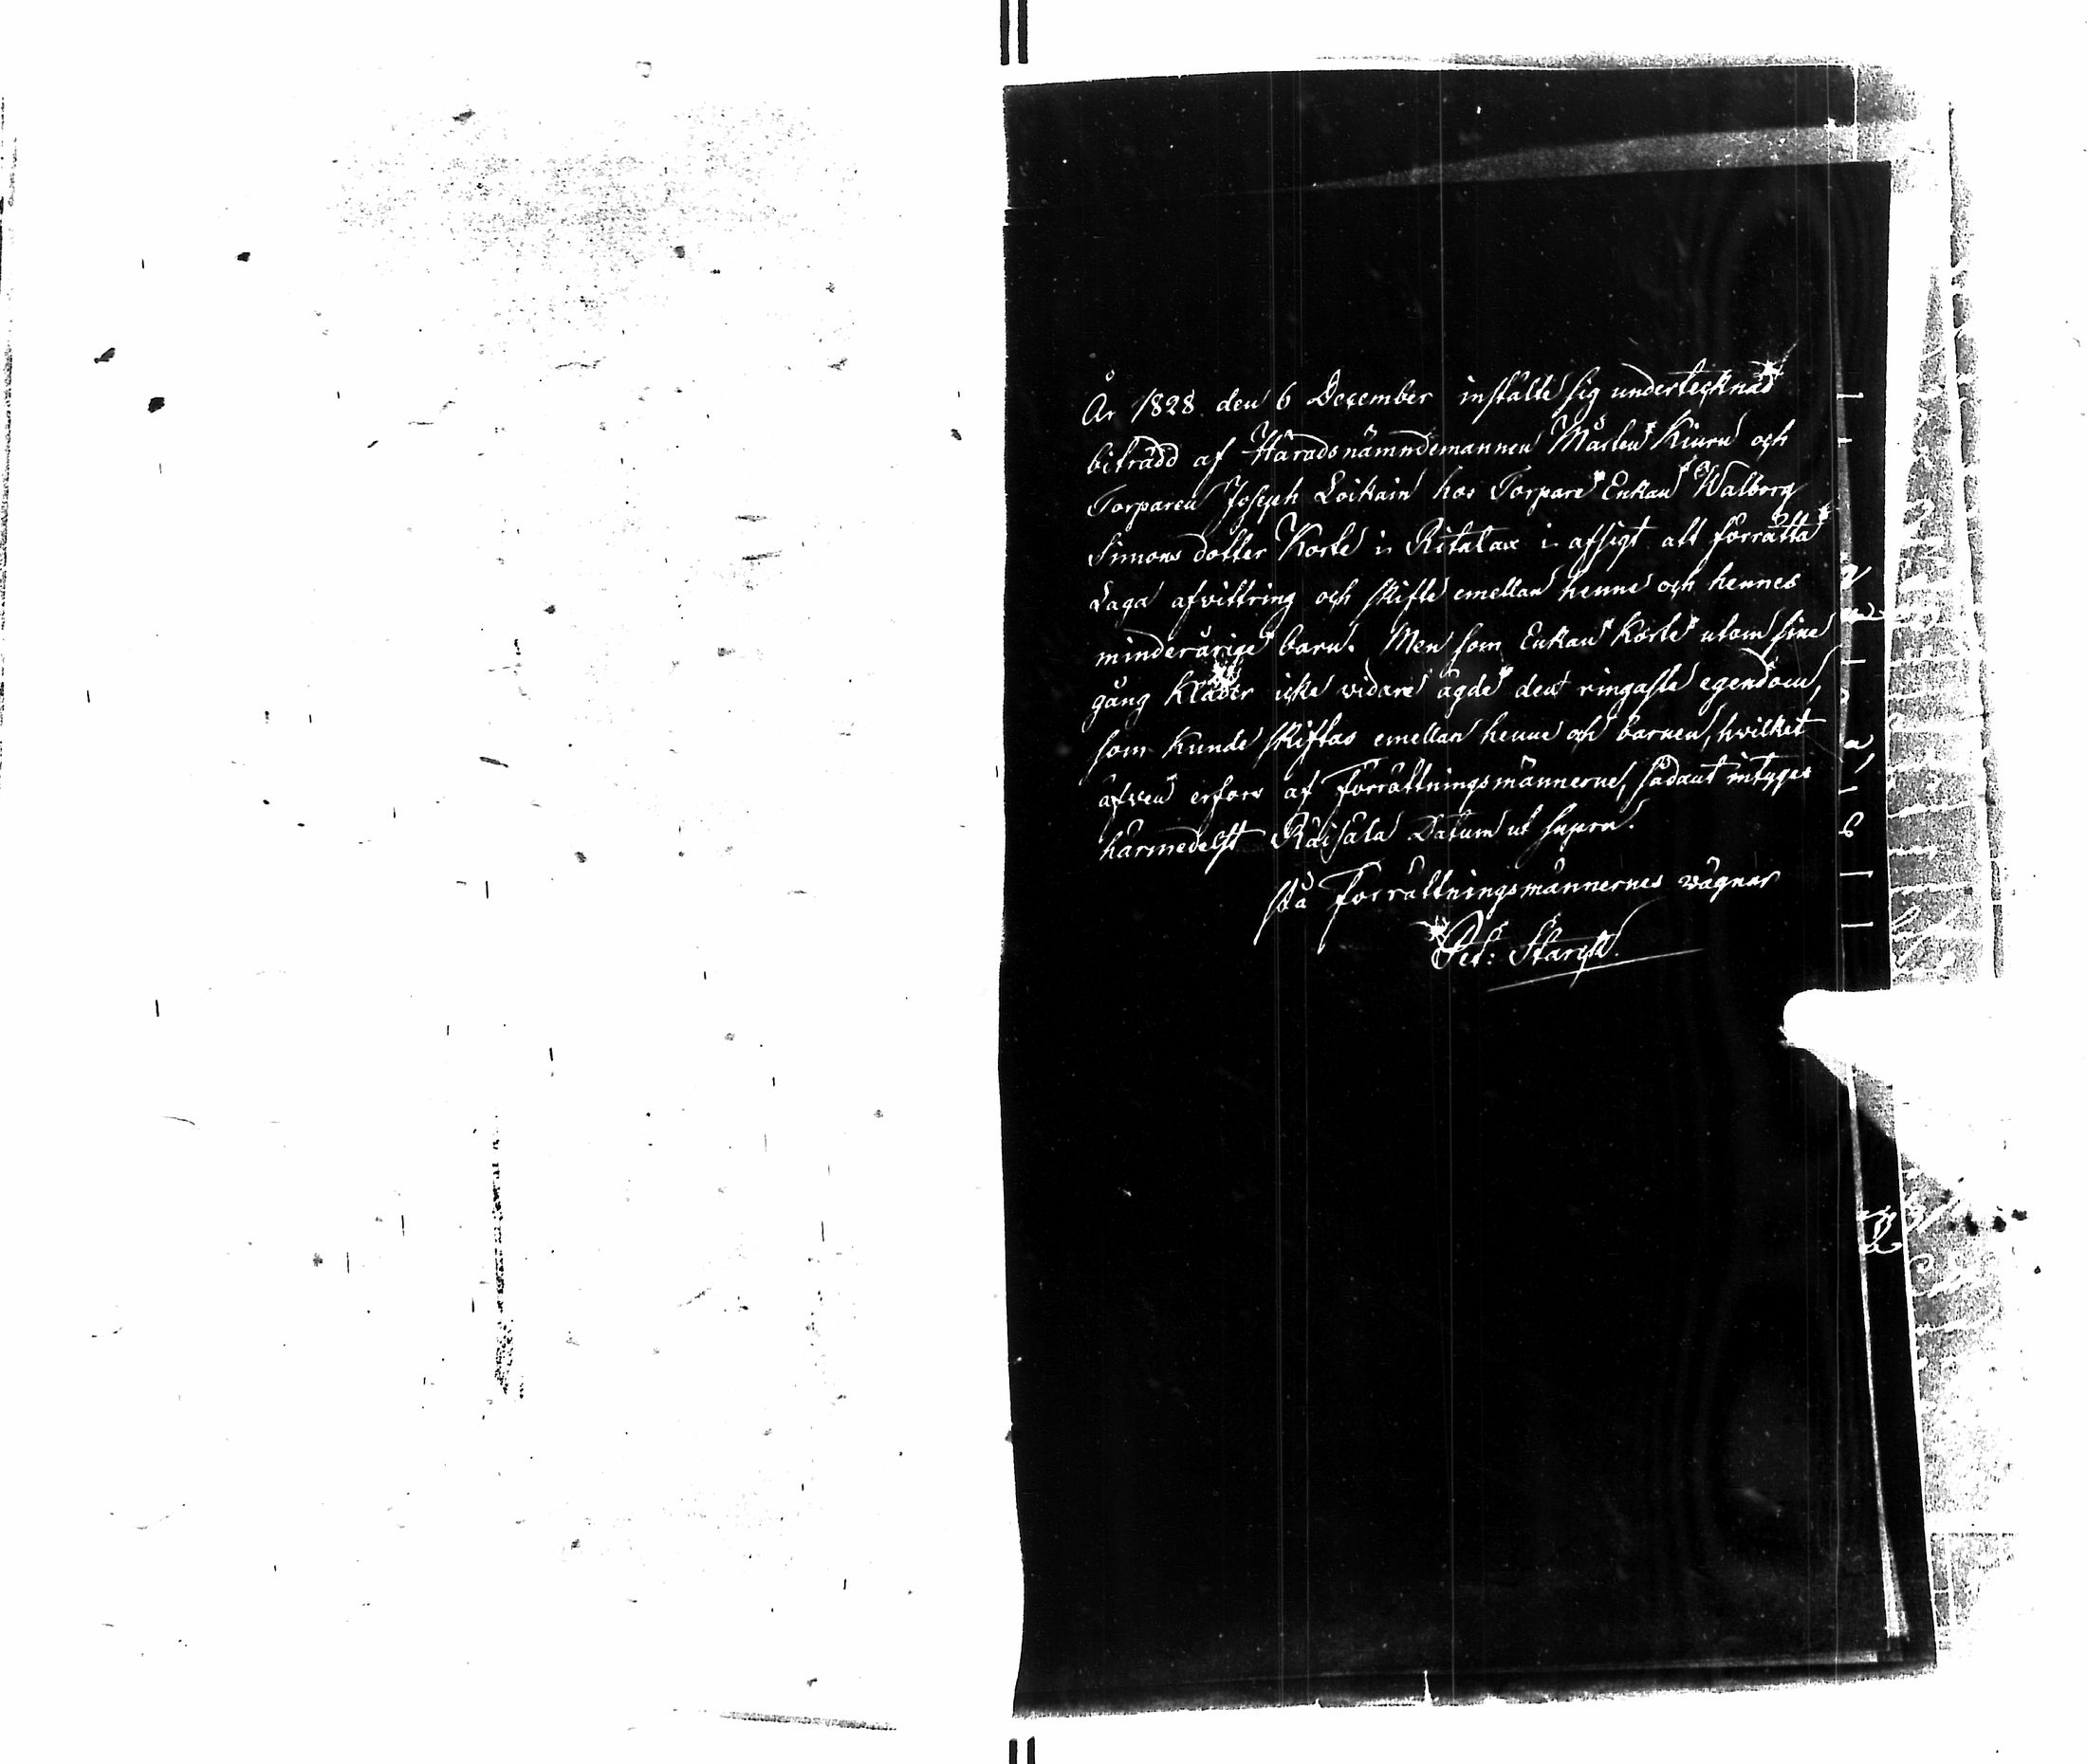 År 1828 den 6 December instälte sig undertecknad
biträdd af Häradsnämndemannen Mårten Kiuru och
Torparen Joseph Loikain hos Torpare Enkan Walborg
Simons dotter Korte i Ritalax i afsigt att förrätta
Laga afvittring och skifte emellan henne och hennes
minderårige barn. Men som Enkan Korte utom sine
gång kläder icke vidare ägde den ringaste egendom,
som kunde skiftas emellan henne och barnen, hvilket
äfven erfors af Förrättningsmännerne, sådant intygas
härmedelst Räisälä Datum ut supra.
På Förrättningsmännernes vägnar
Pet: Starck.